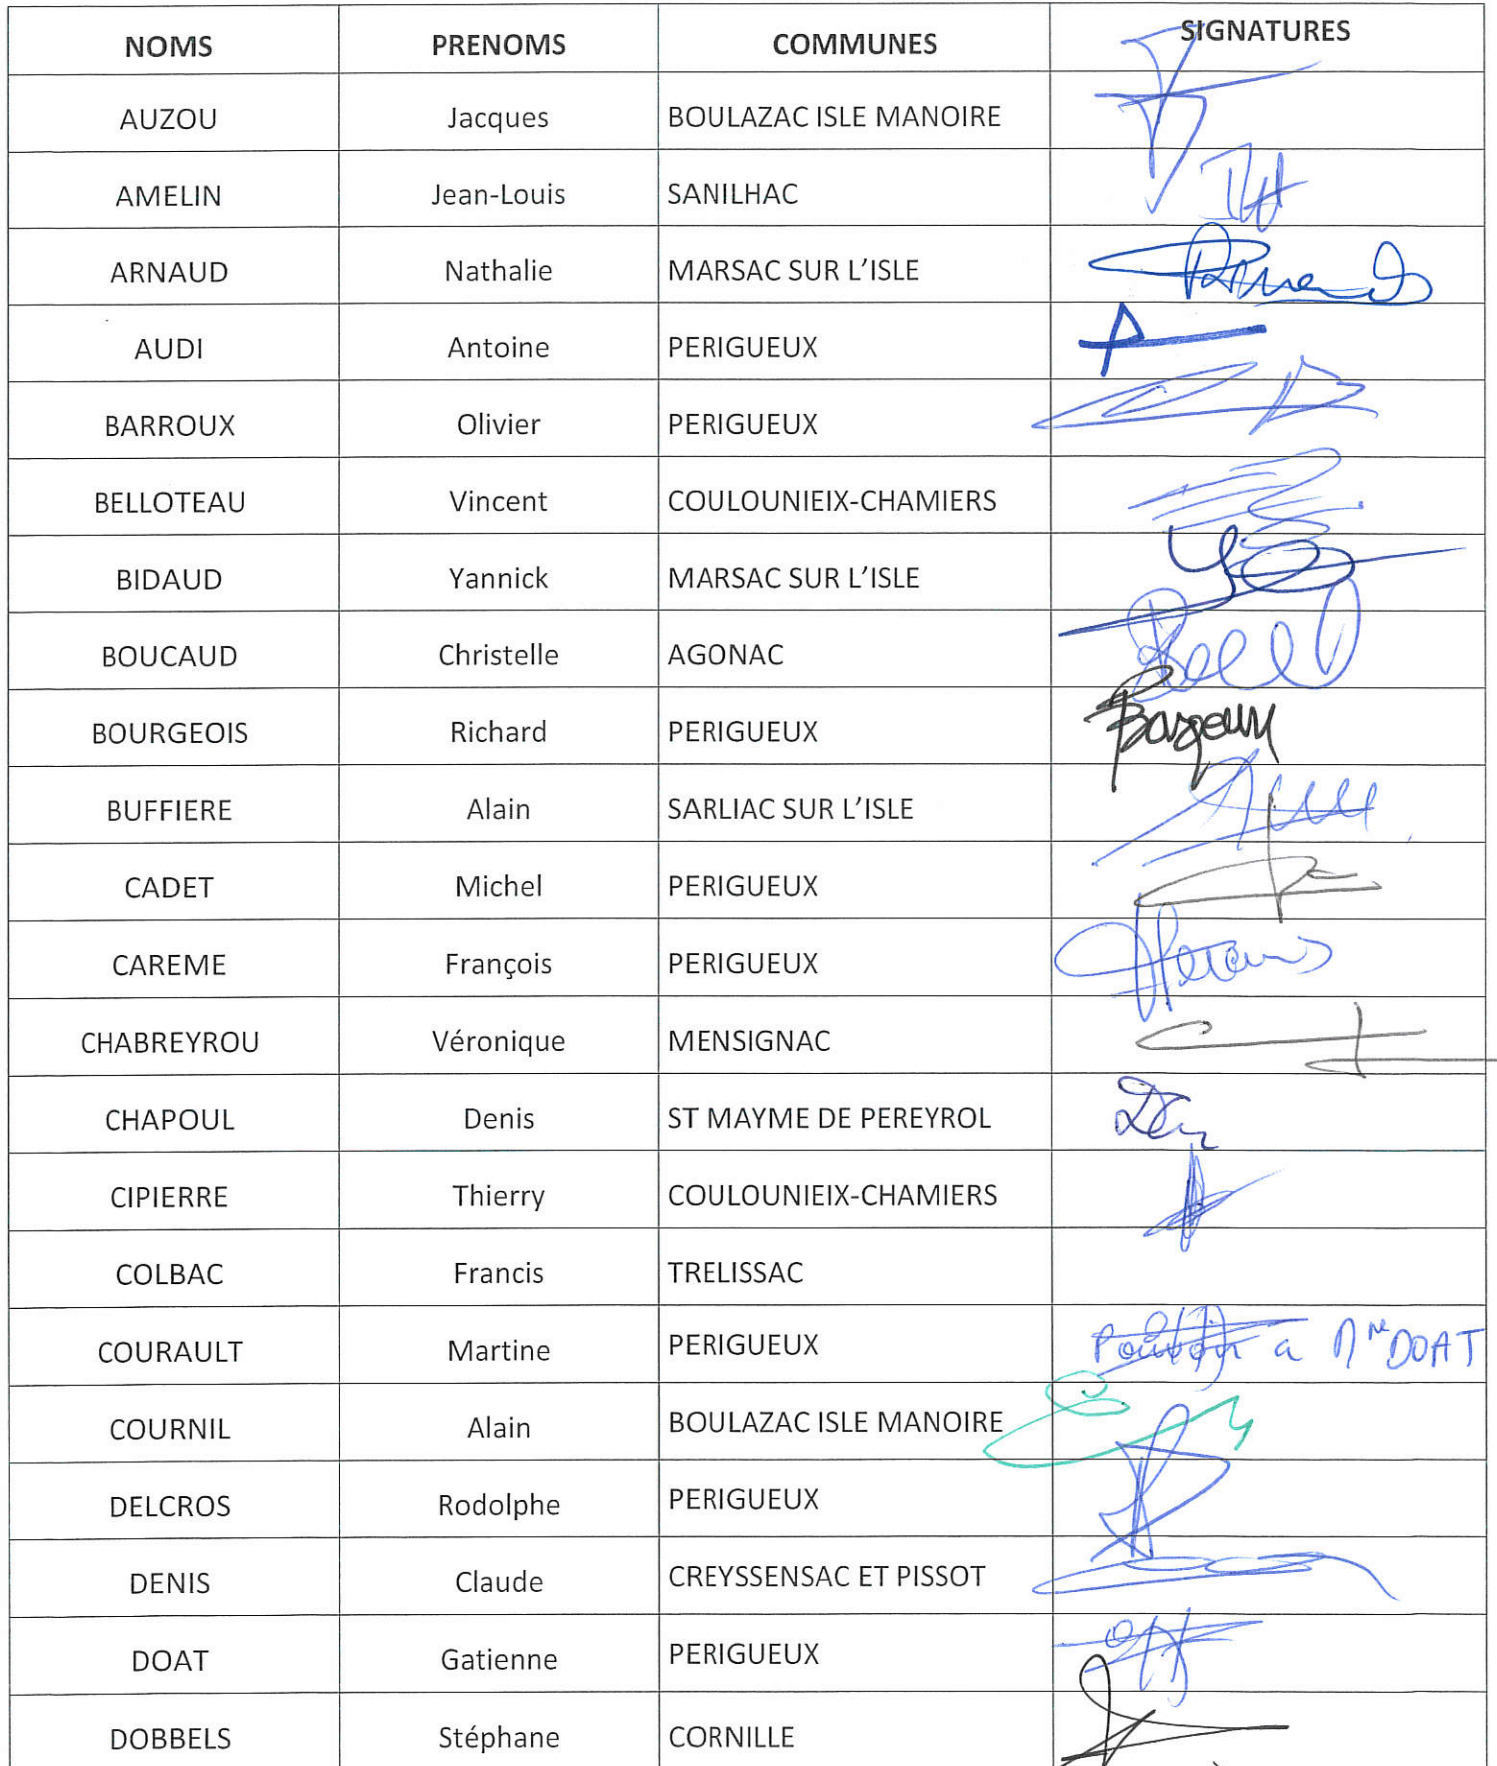 NOMS PRENOMS COMMUNES SIGNATURES
AUZOU Jacques BOULAZAC ISLE MANOIRE
AMELIN Jean-Louis SANILHAC
ARNAUD Nathalie MARSAC SUR L'ISLE
AUDI Antoine PERIGUEUX
BARROUX Olivier PERIGUEUX
BELLOTEAU Vincent COULOUNIEIX-CHAMIERS
BIDAUD Yannick MARSAC SUR L'ISLE
BOUCAUD Christelle AGONAC
BOURGEOIS Richard PERIGUEUX
BUFFIERE Alain SARLIAC SUR L'ISLE
CADET Michel PERIGUEUX
CAREME François PERIGUEUX
CHABREYROU Véronique MENSIGNAC
CHAPOUL Denis ST MAYME DE PEREYROL
CIPIERRE Thierry COULOUNIEIX-CHAMIERS
COLBAC Francis TRELISSAC
COURAULT Martine PERIGUEUX Pouvoir a Mme DOAT
COURNIL Alain BOULAZAC ISLE MANOIRE
DELCROS Rodolphe PERIGUEUX
DENIS Claude CREYSSENSAC ET PISSOT
DOAT Gatienne PERIGUEUX
DOBBELS Stéphane CORNILLE